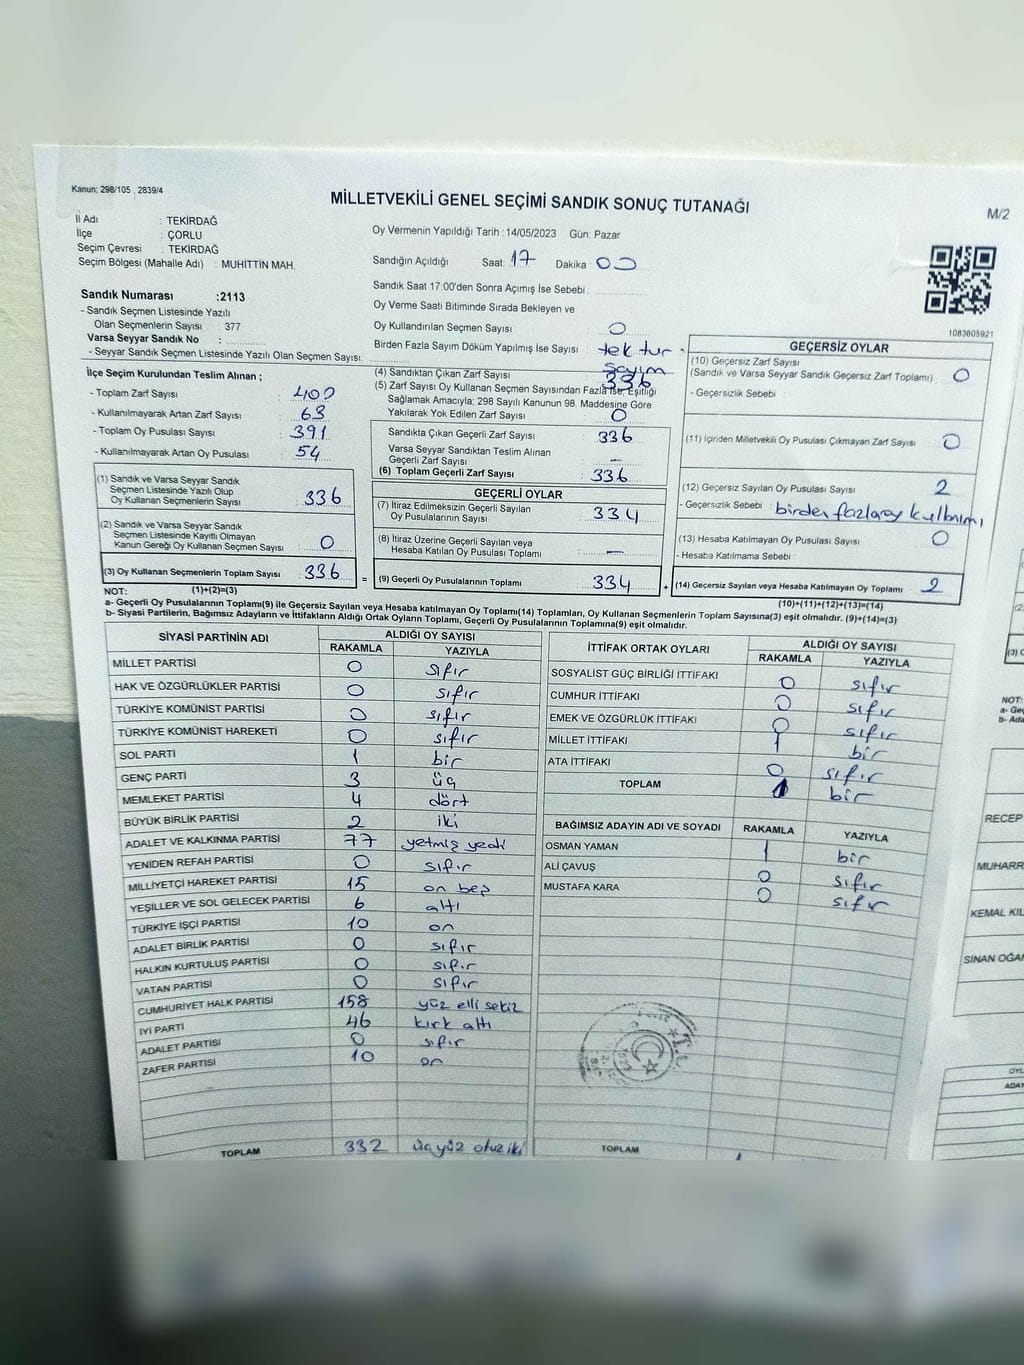 Kanun: 298/105 , 2839/4
MİLLETVEKİLİ GENEL SEÇİMİ SANDIK SONUÇ TUTANAĞI
M/2
İl Adı : TEKİRDAĞ
İlçe : ÇORLU
Seçim Çevresi : TEKİRDAĞ
Seçim Bölgesi (Mahalle Adı) : MUHİTTİN MAH.
Oy Vermenin Yapıldığı Tarih :14/05/2023 Gün: Pazar
Sandığın Açıldığı Saat: 17 Dakika 00
Sandık Saat 17:00'den Sonra Açımış İse Sebebi
Oy Verme Saati Bitiminde Sırada Bekleyen ve
Oy Kullandırılan Seçmen Sayısı : 0
Birden Fazla Sayım Döküm Yapılmış İse Sayısı : tek tur sayım
Sandık Numarası :2113
- Sandık Seçmen Listesinde Yazılı
Olan Seçmenlerin Sayısı : 377
Varsa Seyyar Sandık No :
- Seyyar Sandık Seçmen Listesinde Yazılı Olan Seçmen Sayısı:
1083605921
İlçe Seçim Kurulundan Teslim Alınan ;
- Toplam Zarf Sayısı : 400
- Kullanılmayarak Artan Zarf Sayısı : 63
- Toplam Oy Pusulası Sayısı : 391
- Kullanılmayarak Artan Oy Pusulası : 54
(1) Sandık ve Varsa Seyyar Sandık
Seçmen Listesinde Yazılı Olup
Oy Kullanan Seçmenlerin Sayısı : 336
(2) Sandık ve Varsa Seyyar Sandık
Seçmen Listesinde Kayıtlı Olmayan
Kanun Gereği Oy Kullanan Seçmen Sayısı : 0
(3) Oy Kullanan Seçmenlerin Toplam Sayısı : 336
(4) Sandıktan Çıkan Zarf Sayısı : 336
(5) Zarf Sayısı Oy Kullanan Seçmen Sayısından Fazla İse, Eşitliği
Sağlamak Amacıyla; 298 Sayılı Kanunun 98. Maddesine Göre
Yakılarak Yok Edilen Zarf Sayısı : 0
Sandıkta Çıkan Geçerli Zarf Sayısı : 336
Varsa Seyyar Sandıktan Teslim Alınan
Geçerli Zarf Sayısı : –
(6) Toplam Geçerli Zarf Sayısı : 336
GEÇERLİ OYLAR
(7) İtiraz Edilmeksizin Geçerli Sayılan
Oy Pusulalarının Sayısı : 334
(8) İtiraz Üzerine Geçerli Sayılan veya
Hesaba Katılan Oy Pusulası Toplamı : –
= (9) Geçerli Oy Pusulalarının Toplamı : 334 +
GEÇERSİZ OYLAR
(10) Geçersiz Zarf Sayısı
(Sandık ve Varsa Seyyar Sandık Geçersiz Zarf Toplamı) : 0
- Geçersizlik Sebebi :
(11) İçinden Milletvekili Oy Pusulası Çıkmayan Zarf Sayısı : 0
(12) Geçersiz Sayılan Oy Pusulası Sayısı : 2
- Geçersizlik Sebebi : birden fazla oy kullanımı
(13) Hesaba Katılmayan Oy Pusulası Sayısı : 0
- Hesaba Katılmama Sebebi :
(14) Geçersiz Sayılan veya Hesaba Katılmayan Oy Toplamı : 2
NOT: (1)+(2)=(3)
(10)+(11)+(12)+(13)=(14)
a- Geçerli Oy Pusulalarının Toplamı(9) ile Geçersiz Sayılan veya Hesaba katılmayan Oy Toplamı(14) Toplamları, Oy Kullanan Seçmenlerin Toplam Sayısına(3) eşit olmalıdır. (9)+(14)=(3)
b- Siyasi Partilerin, Bağımsız Adayların ve İttifakların Aldığı Ortak Oyların Toplamı, Geçerli Oy Pusulalarının Toplamına(9) eşit olmalıdır.
SİYASİ PARTİNİN ADI ALDIĞI OY SAYISI
RAKAMLA YAZIYLA
MİLLET PARTİSİ 0 sıfır
HAK VE ÖZGÜRLÜKLER PARTİSİ 0 sıfır
TÜRKİYE KOMÜNİST PARTİSİ 0 sıfır
TÜRKİYE KOMÜNİST HAREKETİ 0 sıfır
SOL PARTİ 1 bir
GENÇ PARTİ 3 üç
MEMLEKET PARTİSİ 4 dört
BÜYÜK BİRLİK PARTİSİ 2 iki
ADALET VE KALKINMA PARTİSİ 77 yetmiş yedi
YENİDEN REFAH PARTİSİ 0 sıfır
MİLLİYETÇİ HAREKET PARTİSİ 15 on beş
YEŞİLLER VE SOL GELECEK PARTİSİ 6 altı
TÜRKİYE İŞÇİ PARTİSİ 10 on
ADALET BİRLİK PARTİSİ 0 sıfır
HALKIN KURTULUŞ PARTİSİ 0 sıfır
VATAN PARTİSİ 0 sıfır
CUMHURİYET HALK PARTİSİ 158 yüz elli sekiz
İYİ PARTİ 46 kırk altı
ADALET PARTİSİ 0 sıfır
ZAFER PARTİSİ 10 on
TOPLAM 332 üçyüz otuz iki
İTTİFAK ORTAK OYLARI ALDIĞI OY SAYISI
RAKAMLA YAZIYLA
SOSYALİST GÜÇ BİRLİĞİ İTTİFAKI 0 sıfır
CUMHUR İTTİFAKI 0 sıfır
EMEK VE ÖZGÜRLÜK İTTİFAKI 0 sıfır
MİLLET İTTİFAKI 1 bir
ATA İTTİFAKI 0 sıfır
TOPLAM 1 bir
BAĞIMSIZ ADAYIN ADI VE SOYADI RAKAMLA YAZIYLA
OSMAN YAMAN 1 bir
ALİ ÇAVUŞ 0 sıfır
MUSTAFA KARA 0 sıfır
T.C.
TOPLAM
(3) O
NOT:
a- Geç
b- Ada
RECEP
MUHARR
KEMAL KIL
SİNAN OĞA
OYL
ADAY